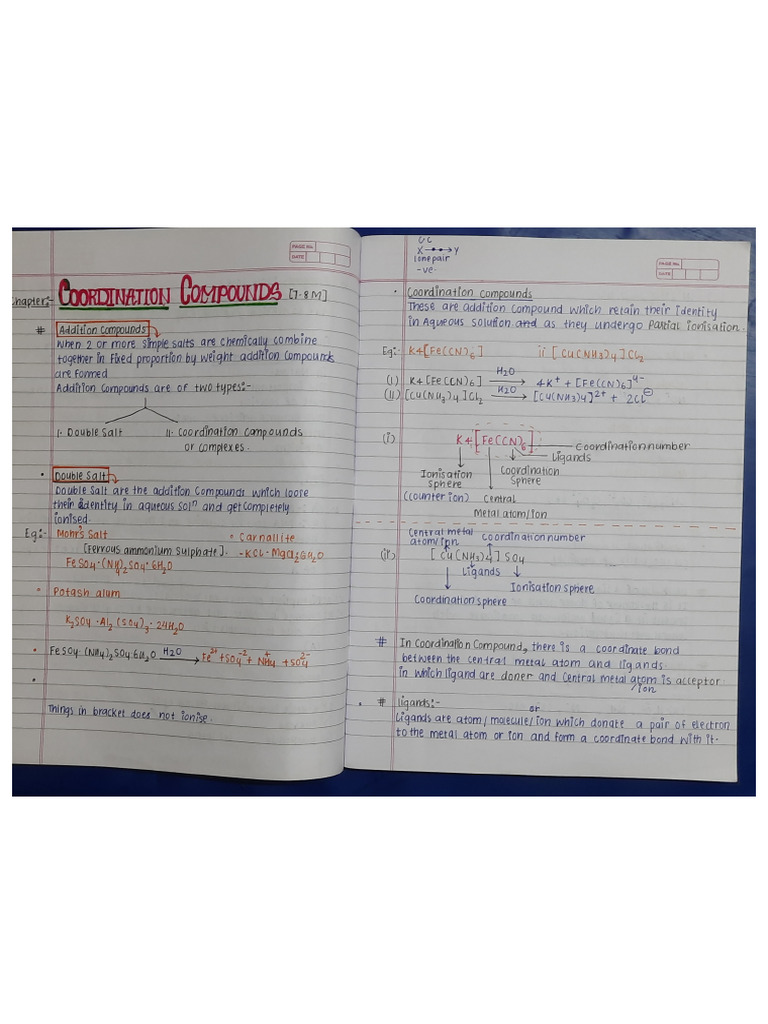 PAGE No.
DATE
Chapter:- COORDINATION COMPOUNDS [7-8M]
# Addition Compounds
When 2 or more simple salts are chemically combine
together in fixed proportion by weight addition compounds
are formed.
Addition Compounds are of two types:-
I. Double Salt
II. Coordination Compounds
or complexes.
• Double Salt
Double Salt are the addition compounds which loose
their identity in aqueous solⁿ and get completely
ionised.
Eg:- Mohr's Salt
[Ferrous ammonium Sulphate].
FeSO4·(NH4)2SO4·6H2O
• Carnallite
- KCl·MgCl2 6H2O
• Potash alum
K2SO4·Al2(SO4)3·24H2O
• FeSO4·(NH4)2SO4·6H2O H2O → Fe2+ + SO4-2 + NH4+ + SO4 2-
Things in bracket does not ionise.
X Y
lone pair
-ve.
PAGE No.
DATE
• Coordination compounds
These are addition compound which retain their identity
in Aqueous solution and as they undergo Partial ionisation.
Eg:- K4[Fe(CN)6] ii [Cu(NH3)4]Cl2
(i) K4[Fe(CN)6] H2O → 4K+ + [Fe(CN)6]4-
(ii) [Cu(NH3)4]Cl2 H2O → [Cu(NH3)4]2+ + 2Cl⊖
(i) K4[Fe(CN)6]
Coordination number
Ligands
Coordination
Sphere
Ionisation
sphere
(counter ion)
Central
Metal atom/ion
Central metal
atom/ion
coordination number
(ii) [Cu(NH3)4]SO4
Ligands
Ionisation sphere
Coordination sphere
# In Coordination Compound, there is a coordinate bond
between the central metal atom and ligands.
in which ligand are doner and central metal atom is acceptor
/ion
# ligands:-
or
Ligands are atom/molecule/ion which donate a pair of electron
to the metal atom or ion and form a coordinate bond with it.